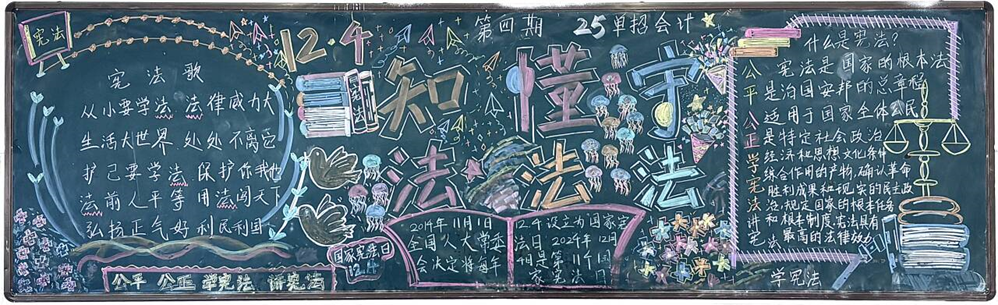 宪法
12.4
第四期
25单招会计
宪法歌
从小要学法 法律威力大
生活大世界 处处不离它
护己要学法 保护你我他
法前人平等 用法闯天下
弘扬正气好 利民利国
公平 公正 学宪法 讲宪法
知 懂 守
法 法 法
国家宪法日
12.4
2014年11月1日
全国人大常委
会决定将每年
12.4设立为国家宪
法日 2024年12月
4日是第11个国
家宪法日
什么是宪法?
宪法是国家的根本法
是治国安邦的总章程
适用于国家全体公民
是特定社会政治
经济和思想文化条件
综合作用的产物,确认革命
胜利成果和现实的民主政
治,规定国家的根本任务
和根本制度宪法具有
最高的法律效力
公平 公正 学宪法 讲宪法
学宪法